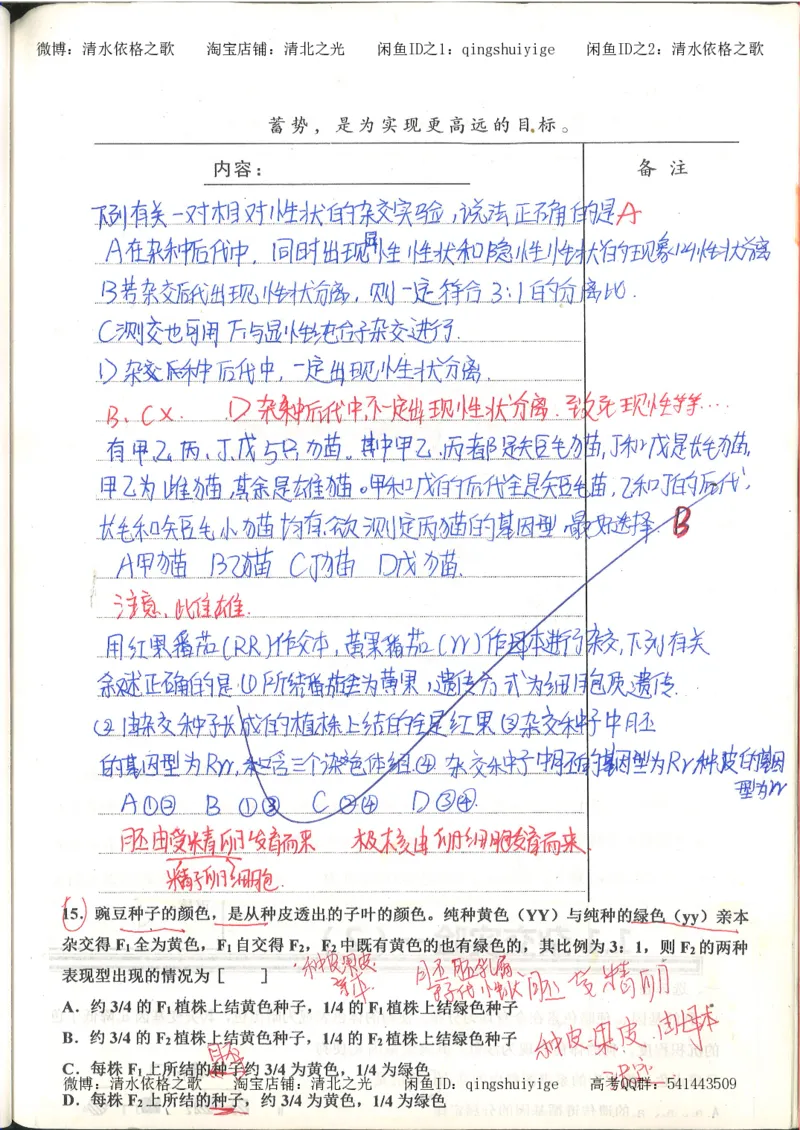 微博：清水依格之歌 淘宝店铺：清北之光 闲鱼ID之1：qingshuiyige 闲鱼ID之2：清水依格之歌
蓄势，是为实现更高远的目标。
内容：
备 注
下列有关一对相对性状的杂交实验，说法正确的是A
A在杂种后代中，同时出现显性性状和隐性性状的现象叫性状分离
B若杂交后代出现性状分离，则一定符合3:1的分离比.
C测交也可用F₁与显性纯合子杂交进行.
D杂交后种后代中，一定出现性状分离.
B、C×. D杂种后代中不一定出现性状分离.致死现性等等…
有甲、乙、丙、丁、戊5只猫。其中甲乙、丙者都是短毛猫，丁和戊是长毛猫，
甲乙为雌猫，其余是雄猫。甲和戊的后代全是短毛猫，乙和丁的后代，
长毛和短毛小猫均有，欲测定丙猫的基因型，最好选择. B
A甲猫 B乙猫 C丁猫 D戊猫.
注意，雌雄.
用红果番茄(RR)作父本，黄果番茄(rr)作母本进行杂交，下列有关
叙述正确的是①所结番茄全为黄果，遗传方式为细胞质遗传.
②由杂交种子长成的植株上结的全是红果③杂交种子中胚
的基因型为Rr，含三个染色体组.④杂交种子中胚的基因型为Rr种皮的基因
型为rr
A①② B①③ C②④ D③④.
胚由受精卵发育而来 极核由卵细胞发育而来.
精子卵细胞.
15．豌豆种子的颜色，是从种皮透出的子叶的颜色。纯种黄色（YY）与纯种的绿色（yy）亲本
杂交得 F₁全为黄色，F₁自交得 F₂，F₂中既有黄色的也有绿色的，其比例为 3：1，则 F₂的两种
表现型出现的情况为［ ］
种皮果皮
亲本
胚胚乳属
子代性状
胚 受精卵
A．约 3/4 的 F₁植株上结黄色种子，1/4 的 F₁植株上结绿色种子
B．约 3/4 的 F₂植株上结黄色种子，1/4 的 F₂植株上结绿色种子
种皮.果皮.由母本
决定
胚
C．每株 F₁上所结的种子约 3/4 为黄色，1/4 为绿色
微博：清水依格之歌 淘宝店铺：清北之光 闲鱼ID：qingshuiyige 高考QQ群：541443509
D．每株 F₂上所结的种子，约 3/4 为黄色，1/4 为绿色